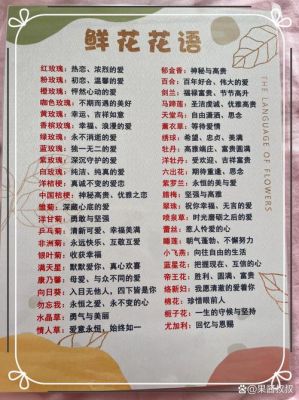 鲜花花语
红玫瑰：热恋、浓烈的爱
粉玫瑰：初恋、温馨的爱
橙玫瑰：怦然心动的爱
咖色玫瑰：不期而遇的美好
黄玫瑰：幸运、吉祥如意
香槟玫瑰：幸福、浪漫的爱
绿玫瑰：永不消逝的爱
蓝玫瑰：独一无二的爱
紫玫瑰：深沉守护的爱
白玫瑰：纯洁、纯真的爱
洋桔梗：真诚不变的爱恋
中国桔梗：神秘高贵、优雅之恋
雏菊：深藏心底的爱
洋甘菊：勇敢与坚强
乒乓菊：清新可爱、幸福美满
非洲菊：永远快乐、互敬互爱
银叶菊：收获幸福
满天星：默默爱你、真心欢喜
康乃馨：母爱、与众不同的爱
向日葵：入目无他人、四下皆是你
勿忘我：永恒之爱、永不变的心
水晶草：勇气与美丽
情人草：爱意永恒，始终如一
郁金香：神秘与高贵
百合：百年好合、伟大的爱
剑兰：福禄富贵、节节高升
马蹄莲：圣洁虔诚、优雅高贵
天堂鸟：自由潇洒、思念
薰衣草：等待爱情
绣球：希望、忠贞、美满
牡丹：高雅端庄、富贵圆满
洋牡丹：受人欢迎、吉祥富贵
六出花：期待重逢、思念
紫罗兰：永恒的美与爱
腊梅：坚强与高雅
翠珠：祝你幸福、无言的爱
喷泉草：时光磨砺之后的爱
蕾丝：惹人怜爱的心
睡莲：朝气蓬勃、不懈努力
小飞燕：向往自由的生活
蓝星花：把握现在、互信的心
帝王花：胜利、圆满、富贵
络新妇：我愿清澈的爱着你
棉花：珍惜眼前人
栀子花：一生的守候与坚持
尤加利：回忆与恩赐
THE LANGUAGE OF FLOWERS
果酱叔叔